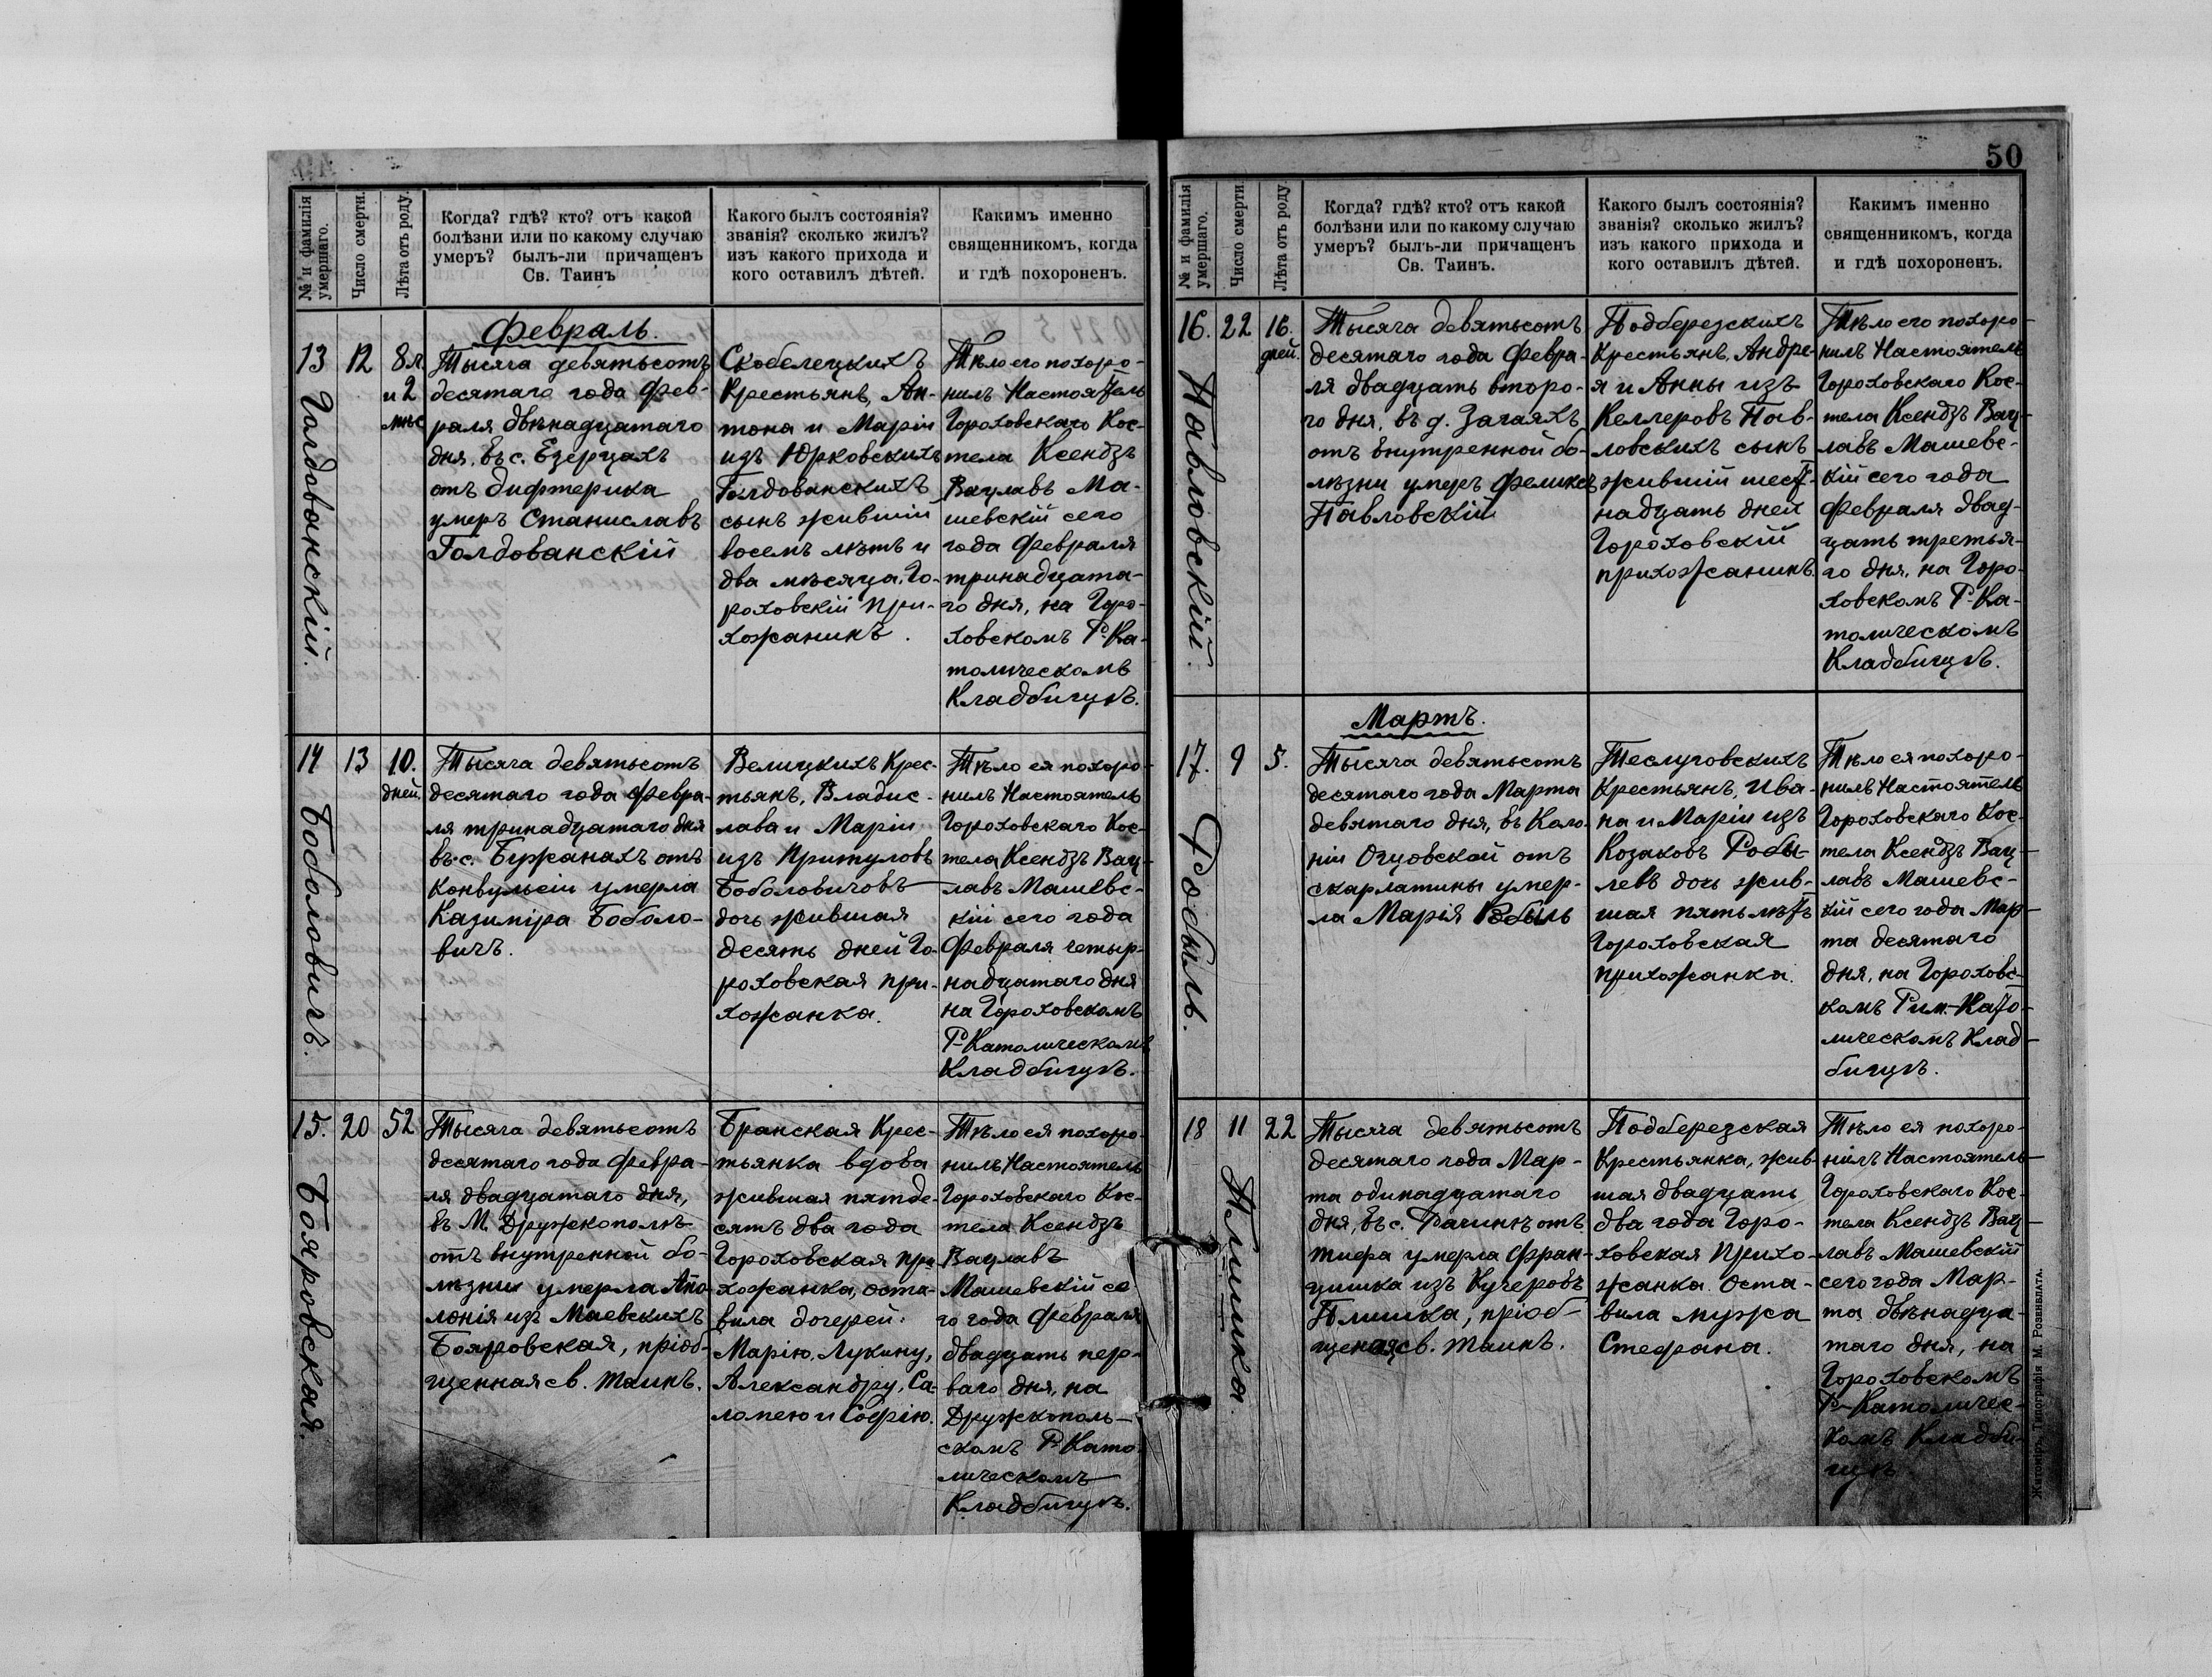 50
№ и фамилія умершаго.
Число смерти.
Лѣта отъ роду.
Когда? гдѣ? кто? отъ какой
болѣзни или по какому случаю
умеръ? былъ-ли причащенъ
Св. Таинъ
Какого былъ состоянія?
званія? сколько жилъ?
изъ какого прихода и
кого оставилъ дѣтей.
Какимъ именно
священникомъ, когда
и гдѣ похороненъ.
Февраль.
13
Голдованскій.
12
8 л.
и 2
мѣс
Тысяча девятьсотъ
десятаго года Фев-
раля двѣнадцатаго
дня, въ с. Езерцахъ
отъ дифтерика
умеръ Станиславъ
Голдованскій
Скобелецкихъ
Крестьянъ, Ан-
тона и Маріи
изъ Юрковскихъ
Голдованскихъ
сынъ жившій
восемь лѣтъ и
два мѣсяца, Го-
роховскій при-
хожанинъ.
Тѣло его похоро-
нилъ Настоятель
Гороховскаго Кос-
тела Ксендзъ
Вацлавъ Ма-
шевскій сего
года Февраля
тринадцата-
го дня, на Горо-
ховскомъ Р-Ка-
толическомъ
Кладбищѣ.
14
Боболовичъ.
13
10.
дней.
Тысяча девятьсотъ
десятаго года Февра-
ля тринадцатаго дня
въ с. Бужанахъ отъ
конвульсіи умерла
Казиміра Боболо-
вичъ.
Велицкихъ Крес-
тьянъ, Владис-
лава и Маріи
изъ Притуловъ
Боболовичовъ
дочь жившая
десять дней Го-
роховская при-
хожанка.
Тѣло ея похоро-
нилъ Настоятель
Гороховскаго Кос-
тела Ксендзъ Вац-
лавъ Машевс-
кій сего года
Февраля четыр-
надцатаго дня
на Гороховскомъ
Р-Католическомъ
Кладбищѣ.
15.
Бояровская.
20
52
Тысяча девятьсотъ
десятаго года Февра-
ля двадцатаго дня,
въ М. Дружкополѣ
отъ внутренной бо-
лѣзни умерла Апо-
лонія изъ Маевскихъ
Бояровская, пріоб-
щенная св. таинъ.
Бранская Крес-
тьянка вдова
жившая пятьде-
сятъ два года
Гороховская при
хожанка, оста-
вила дочерей:
Марію, Лукину,
Александру, Са-
ломею и Софію.
Тѣло ея похоро-
нилъ Настоятель
Гороховскаго Кос-
тела Ксендзъ
Вацлавъ
Машевскій се
го года Февраля
двадцать пер-
ваго дня, на
Дружкополь-
скомъ Р-Като-
лическомъ
Кладбищѣ.
№ и фамилія умершаго.
Число смерти.
Лѣта отъ роду.
Когда? гдѣ? кто? отъ какой
болѣзни или по какому случаю
умеръ? былъ-ли причащенъ
Св. Таинъ.
Какого былъ состоянія?
званія? сколько жилъ?
изъ какого прихода и
кого оставилъ дѣтей.
Какимъ именно
священникомъ, когда
и гдѣ похороненъ.
16.
Павловскій.
22
16.
дней.
Тысяча девятьсотъ
десятаго года Февра-
ля двадцать второ-
го дня, въ д. Загаяхъ
отъ внутренной бо-
лѣзни умеръ Феликсъ
Павловскій
Подберезскихъ
Крестьянъ, Андре-
я и Анны изъ
Келлеровъ Пав-
ловскихъ сынъ
жившій шест-
надцать дней
Гороховскій
прихожанинъ.
Тѣло его похоро-
нилъ Настоятель
Гороховскаго Кос-
тела Ксендзъ Вац-
лавъ Машевс-
кій сего года
Февраля двад-
цать третья-
го дня, на Горо-
ховскомъ Р-Ка-
толическомъ
Кладбищѣ.
Мартъ.
17.
Робыль.
9
5.
Тысяча девятьсотъ
десятаго года Марта
девятаго дня, въ Коло-
ніи Огцовской отъ
скарлатины умер-
ла Марія Робыль
Теслуговскихъ
Крестьянъ, Ива-
на и Маріи изъ
Козаковъ Робы-
левъ дочь жив-
шая пять лѣтъ
Гороховская
прихожанка.
Тѣло ея похоро-
нилъ Настоятель
Гороховскаго Кос-
тела Ксендзъ Вац-
лавъ Машевс-
кій сего года Мар-
та десятаго
дня, на Гороховс-
комъ Рим.-Като-
лическомъ Клад-
бищѣ.
18
Плишка
11
22
Тысяча девятьсотъ
десятаго года Мар-
та одинадцатаго
дня, въ с. Рачинѣ отъ
тифа умерла Фран-
цишка изъ Кучеровъ
Плишка, пріоб-
щеная св. таинъ.
Подберезская
Крестьянка, жив-
шая двадцать
два года Горо-
ховская Прихо-
жанка. Оста-
вила мужа
Стефана.
Тѣло ея похоро-
нилъ Настоятель
Гороховскаго Кос-
тела Ксендзъ Вац-
лавъ Машевскій
сего года Мар-
та двѣнадца-
таго дня, на
Гороховскомъ
Р-Католичес-
комъ Кладби-
щѣ
Житоміръ, Типографія М. Розенблата.